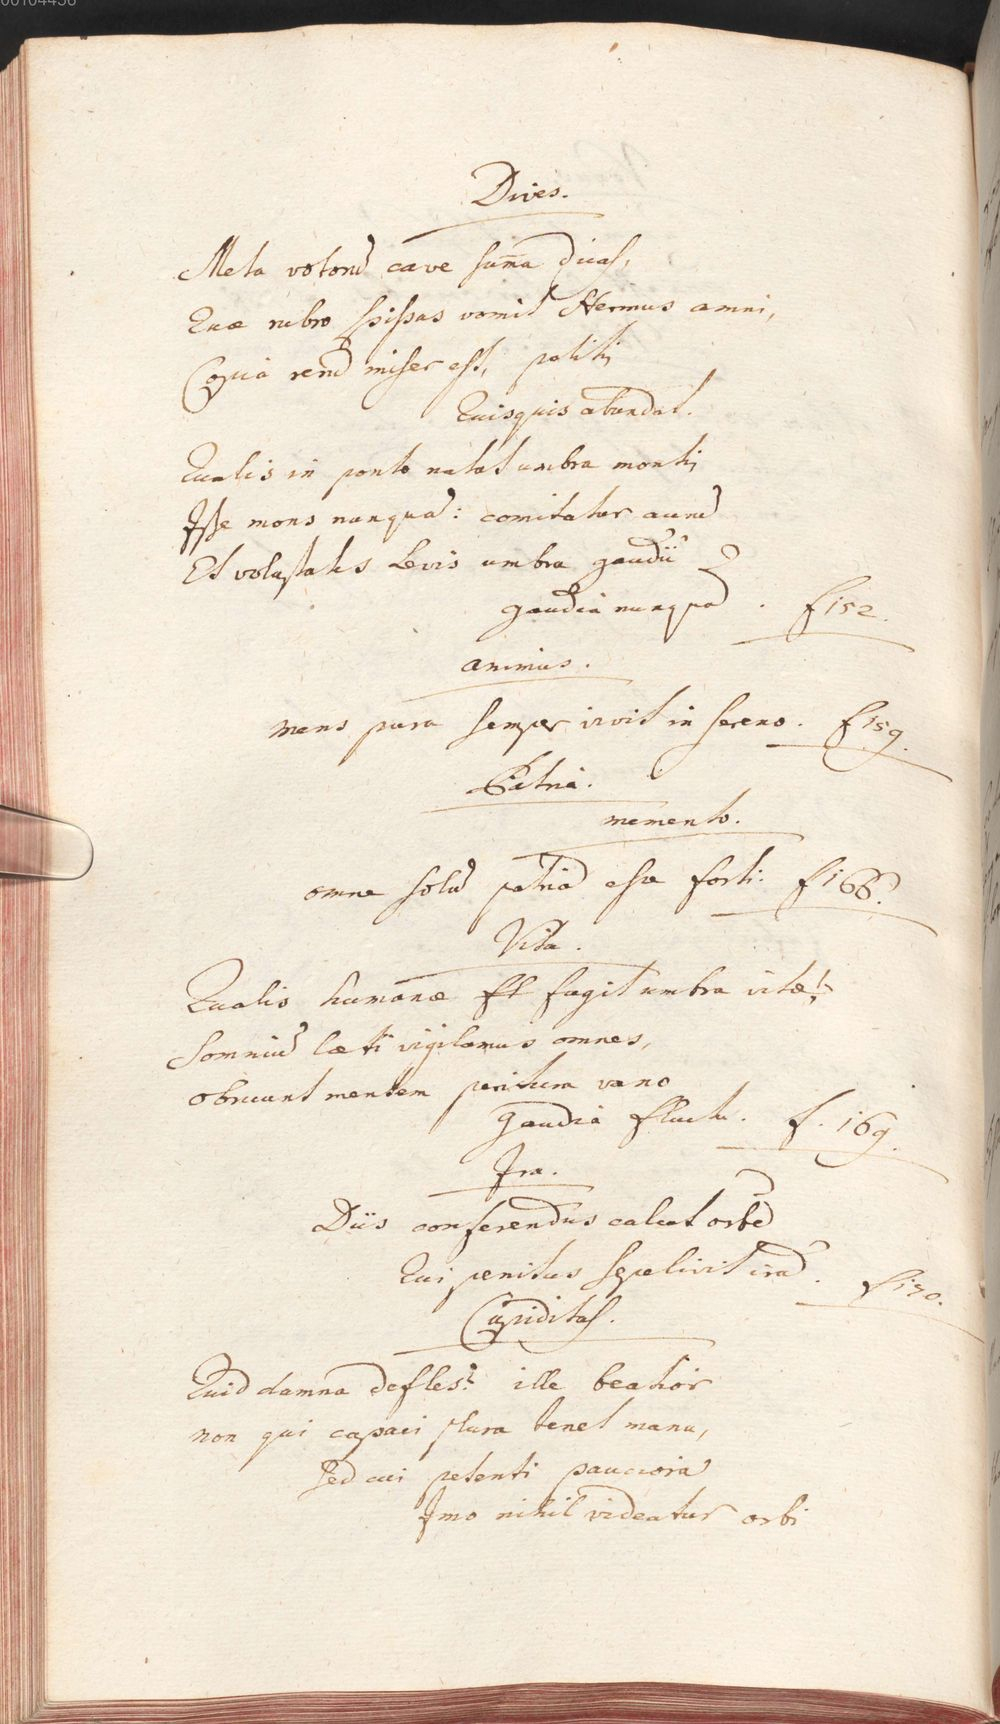 00104456
Dives.
Meta votorũ cave suma̅ ducas,
Quæ rubro spissas vomit Hermus amni,
Copiâ rerũ miser est, potitis
Quisquis abundat.
Qualis in ponto natat umbra montis
Ipse mons nunquã: comitatur aurũ
Et voluptatis levis umbra gaudii
gaudia nunquã. f 152.
animus.
mens pura semper vivit in sereno. f 159.
Patria.
memento.
omne solũ patriã esse forti. f 166.
Vita.
Qualis humanæ fugit umbra vitæ!
Somniũ læti vigilamus omnes,
obruunt mentem peritura vano
Gaudia fluctu. f. 169.
Ira.
Diis conferendus calcat orbẽ
Qui penitus sepelivit irã. f 170.
Cupiditas.
Quid damna defles? ille beatior
non qui capaci plura tenet manu,
sed cui petenti pauciora
Imo nihil videatur orbi